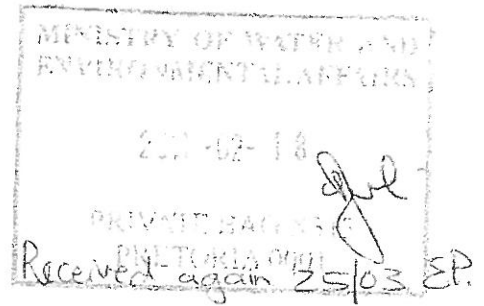 MINISTRY OF WATER AND
ENVIRONMENTAL AFFAIRS
-02- 18
PRIVATE BAG
PRETORIA 0001
Received again 25/03 EP.